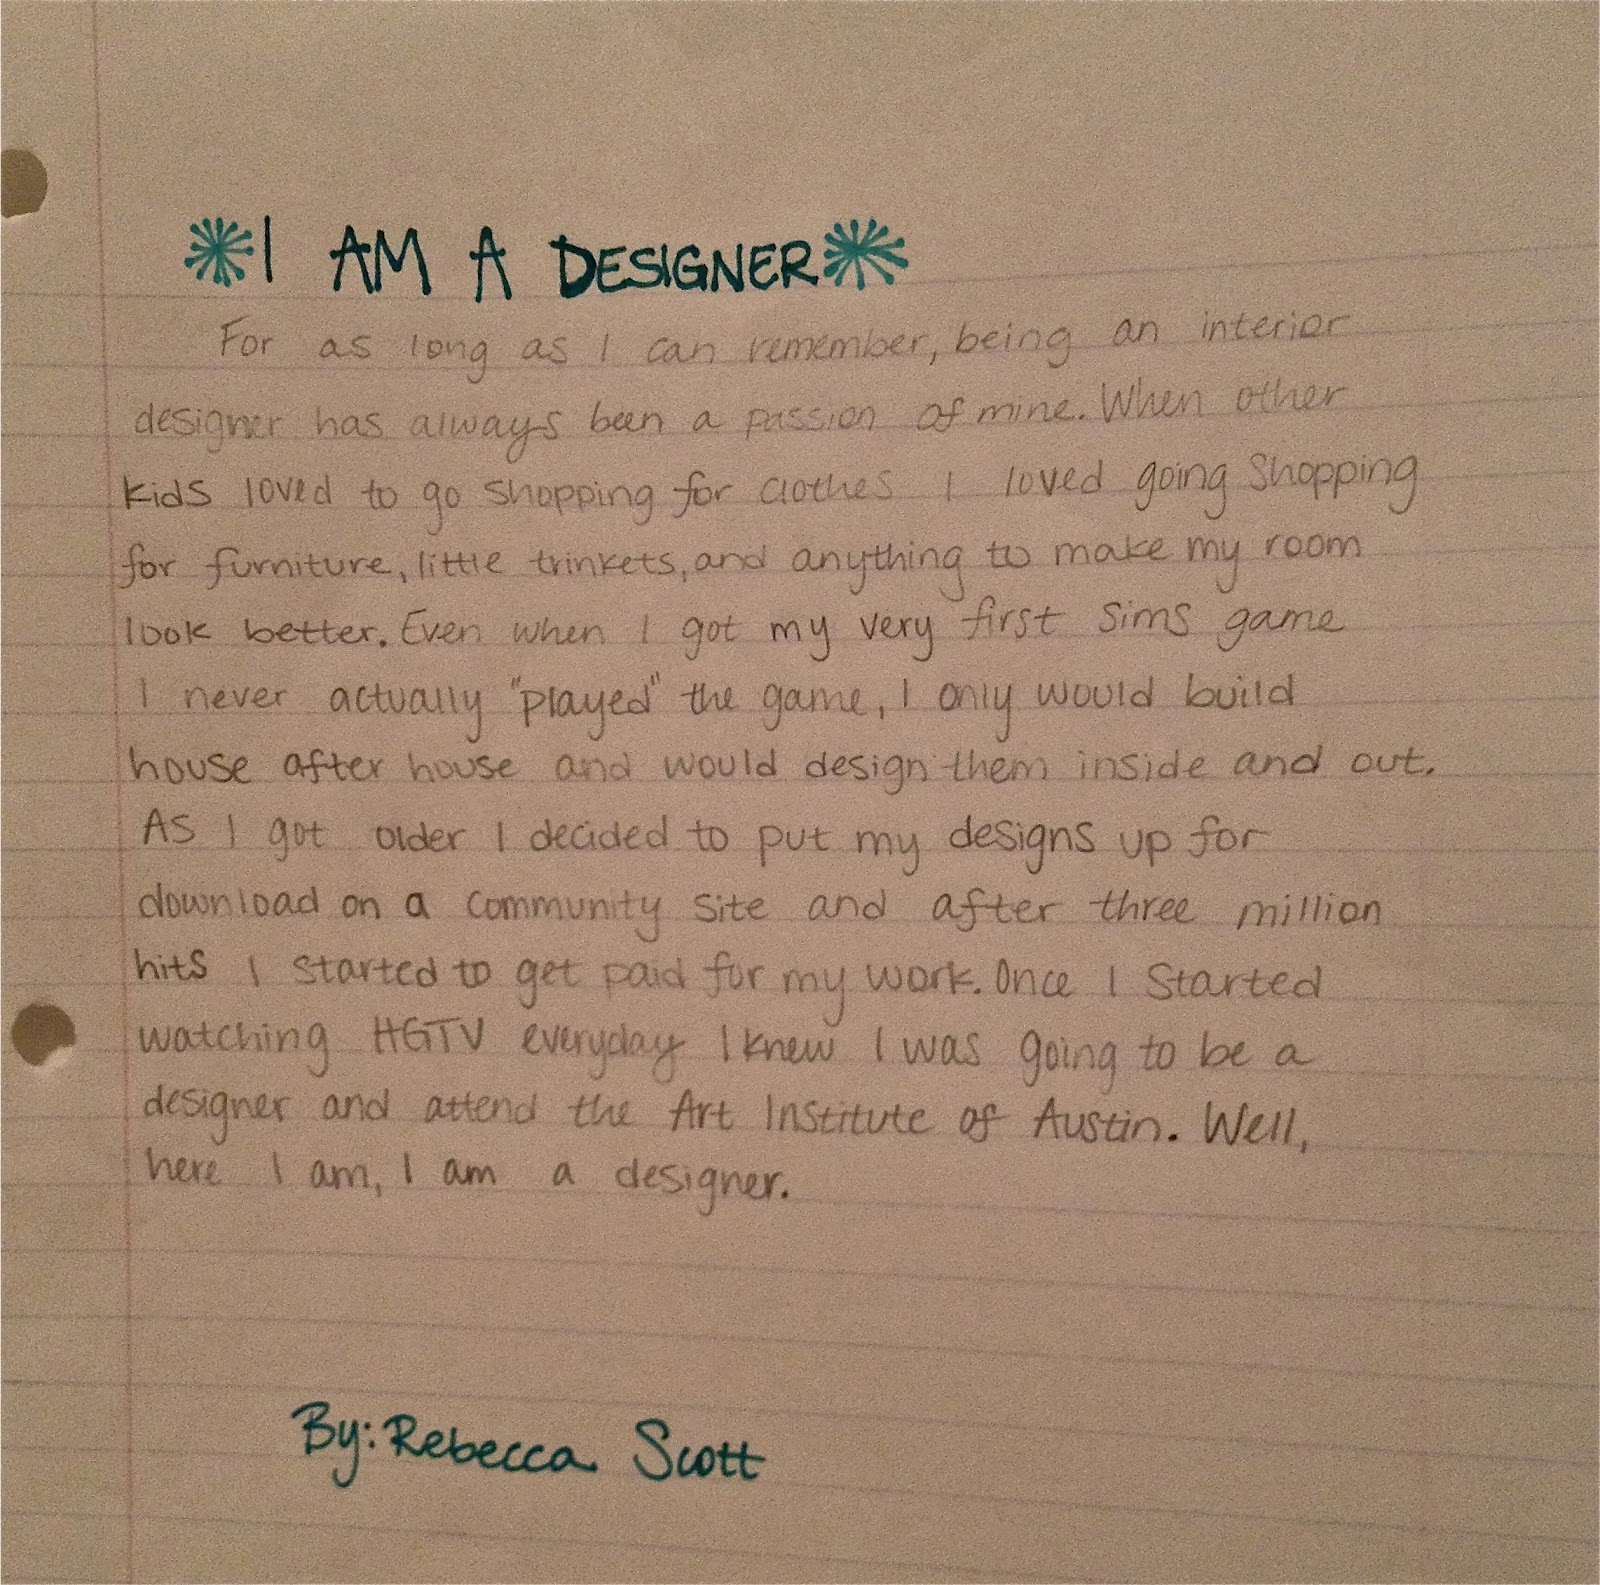 I AM A DESIGNER
For as long as I can remember, being an interior
designer has always been a passion of mine. When other
kids loved to go shopping for clothes I loved going shopping
for furniture, little trinkets, and anything to make my room
look better. Even when I got my very first sims game
I never actually "played" the game, I only would build
house after house and would design them inside and out.
As I got older I decided to put my designs up for
download on a community site and after three million
hits I started to get paid for my work. Once I started
watching HGTV everyday I knew I was going to be a
designer and attend the Art Institute of Austin. Well,
here I am, I am a designer.
By: Rebecca Scott